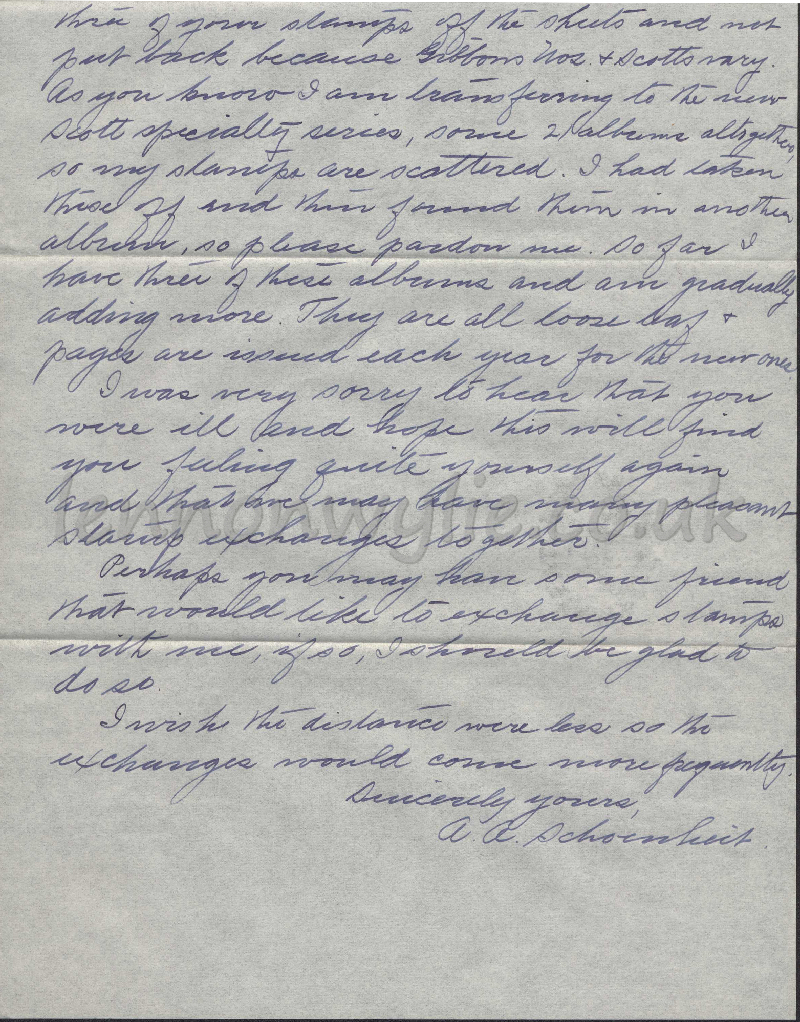 three of your stamps off the sheets and not
put back because Gibbons Nos. & Scotts vary.
As you know I am transferring to the new
Scott specialty series, some 21 albums altogether,
so my stamps are scattered. I had taken
these off and then found them in another
album, so please pardon me. So far I
have three of these albums and am gradually
adding more. They are all loose leaf &
pages are issued each year for the new ones.
I was very sorry to hear that you
were ill and hope this will find
you feeling quite yourself again
and that we may have many pleasant
stamp exchanges together.
lennonwylie.co.uk
Perhaps you may have some friend
that would like to exchange stamps
with me, if so, I should be glad to
do so.
I wish the distance were less so the
exchanges would come more frequently.
Sincerely yours,
A. A. Schoenheit.